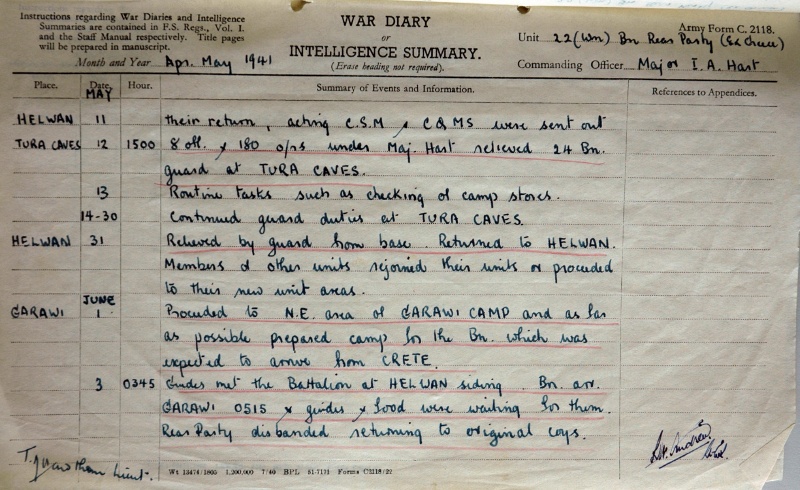 Instructions regarding War Diaries and Intelligence
Summaries are contained in F.S. Regs., Vol. I.
and the Staff Manual respectively. Title pages
will be prepared in manuscript.
Month and Year Apr. May 1941
WAR DIARY
or
INTELLIGENCE SUMMARY.
(Erase heading not required).
Army Form C. 2118.
Unit 22 (Wn) Bn Rear Party (Ex Greece)
Commanding Officer Major I. A. Hart
Place. Date Hour. Summary of Events and Information. References to Appendices.
MAY
HELWAN 11 their return, acting C.S.M & CQMS were sent out
TURA CAVES 12 1500 8 off. & 180 o/rs under Maj. Hart relieved 24 Bn.
guard at TURA CAVES.
13 Routine tasks such as checking of camp stores.
14-30 Continued guard duties at TURA CAVES.
HELWAN 31 Relieved by guard from base. Returned to HELWAN.
Members of other units rejoined their units or proceded
to their new unit areas.
JUNE
GARAWI 1 Proceeded to N.E. area of GARAWI CAMP and as far
as possible prepared camp for the Bn. which was
expected to arrive from CRETE.
3 0345 Guides met the Battalion at HELWAN siding. Bn. arr.
GARAWI 0515 & guides & food were waiting for them.
Rear Party disbanded returning to original coys.
Lieut.
Wt 13474/1805 1,200,000 7/40 BPL 51-7171 Forms C2118/22